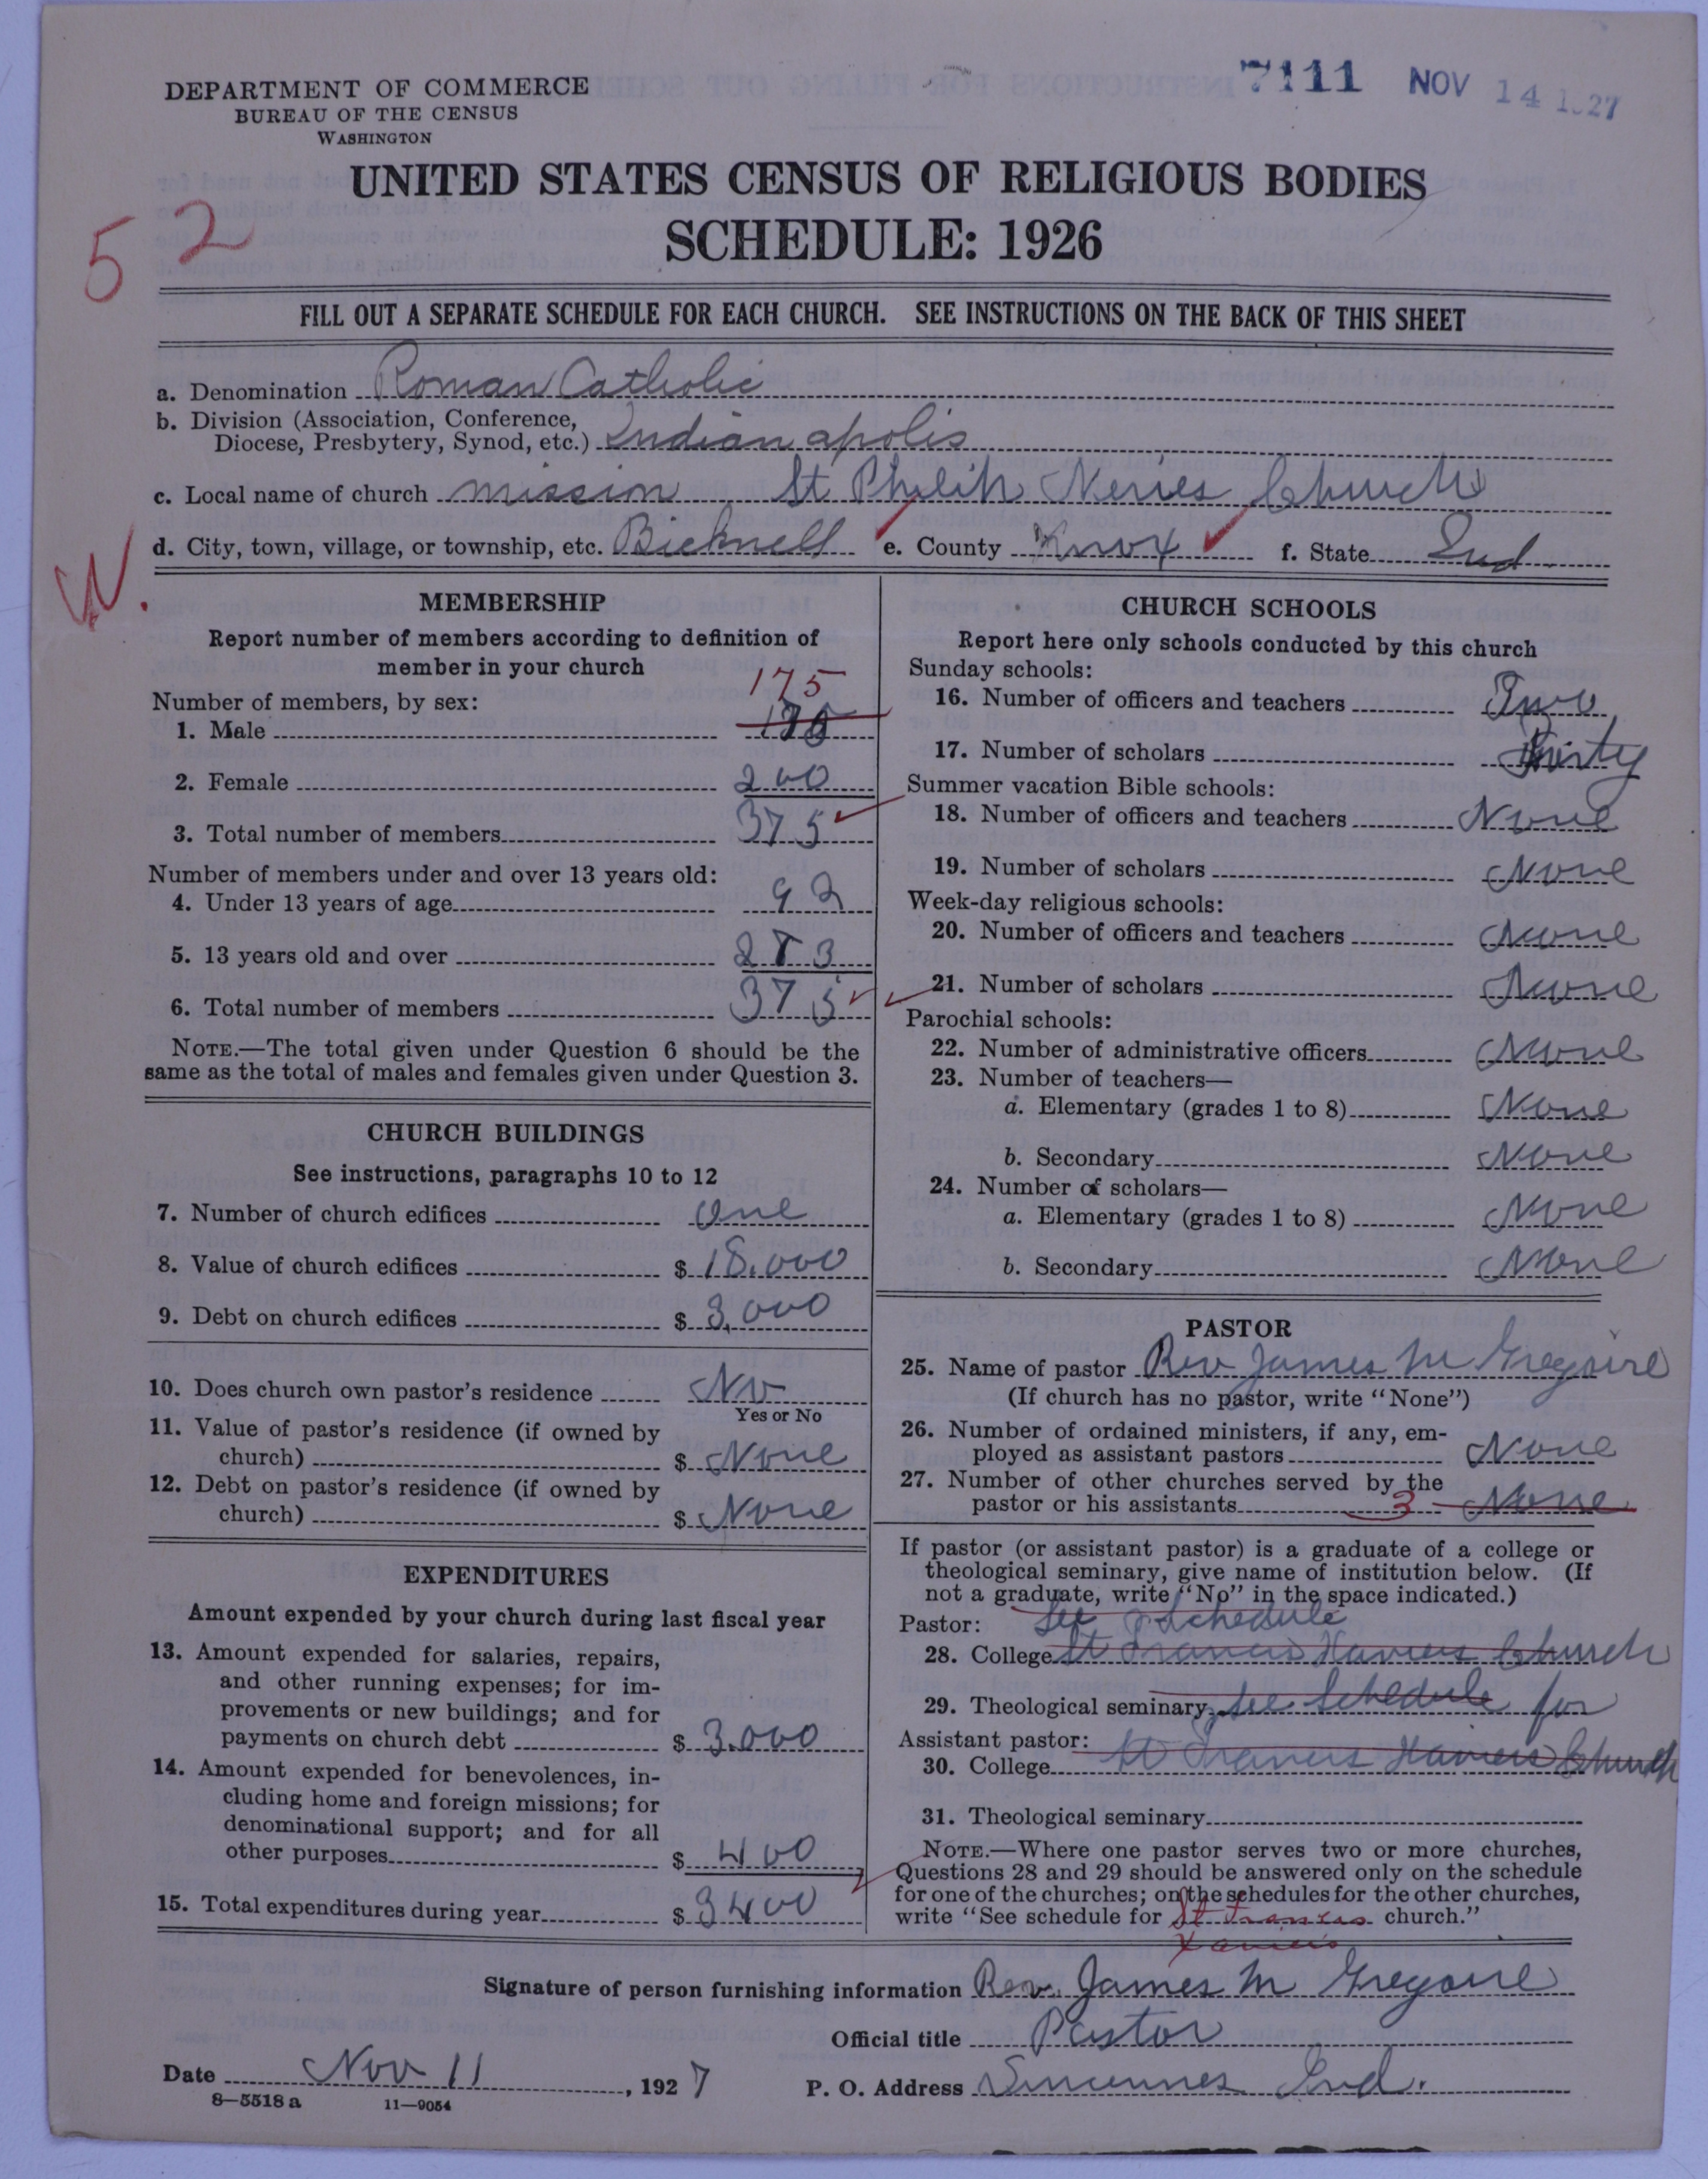 7111 NOV 14 1927
DEPARTMENT OF COMMERCE
BUREAU OF THE CENSUS
WASHINGTON
UNITED STATES CENSUS OF RELIGIOUS BODIES
SCHEDULE: 1926
52
FILL OUT A SEPARATE SCHEDULE FOR EACH CHURCH. SEE INSTRUCTIONS ON THE BACK OF THIS SHEET
a. Denomination Roman Catholic
b. Division (Association, Conference,
Diocese, Presbytery, Synod, etc.) Indianapolis
c. Local name of church mission St Philip Neries Church
d. City, town, village, or township, etc. Bicknell e. County Knox f. State Ind.
W.
MEMBERSHIP
Report number of members according to definition of
member in your church
Number of members, by sex:
175
1. Male
2. Female 200
3. Total number of members 375
Number of members under and over 13 years old:
4. Under 13 years of age 92
5. 13 years old and over 283
6. Total number of members 375
NOTE.—The total given under Question 6 should be the
same as the total of males and females given under Question 3.
CHURCH BUILDINGS
See instructions, paragraphs 10 to 12
7. Number of church edifices One
8. Value of church edifices $ 18,000
9. Debt on church edifices $ 3,000
10. Does church own pastor's residence No
Yes or No
11. Value of pastor's residence (if owned by
church) $ None
12. Debt on pastor's residence (if owned by
church) $ None
EXPENDITURES
Amount expended by your church during last fiscal year
13. Amount expended for salaries, repairs,
and other running expenses; for im-
provements or new buildings; and for
payments on church debt $ 3.000
14. Amount expended for benevolences, in-
cluding home and foreign missions; for
denominational support; and for all
other purposes $ 400
15. Total expenditures during year $ 3400
CHURCH SCHOOLS
Report here only schools conducted by this church
Sunday schools:
16. Number of officers and teachers Two
17. Number of scholars Thirty
Summer vacation Bible schools:
18. Number of officers and teachers None
19. Number of scholars None
Week-day religious schools:
20. Number of officers and teachers None
21. Number of scholars None
Parochial schools:
22. Number of administrative officers None
23. Number of teachers—
a. Elementary (grades 1 to 8) None
b. Secondary None
24. Number of scholars—
a. Elementary (grades 1 to 8) None
b. Secondary None
PASTOR
25. Name of pastor Rev James M Gregoire
(If church has no pastor, write "None")
26. Number of ordained ministers, if any, em-
ployed as assistant pastors None
27. Number of other churches served by the
pastor or his assistants 3 None
If pastor (or assistant pastor) is a graduate of a college or
theological seminary, give name of institution below. (If
not a graduate, write "No" in the space indicated.)
Pastor: See Schedule
28. College St Francis Xaviers Church
29. Theological seminary See Schedule for
Assistant pastor:
30. College St Francis Xaviers Church
31. Theological seminary
NOTE.—Where one pastor serves two or more churches,
Questions 28 and 29 should be answered only on the schedule
for one of the churches; on the schedules for the other churches,
write "See schedule for St Francis church."
Xaviers
Signature of person furnishing information Rev. James M Gregoire
Official title Pastor
Date Nov 11, 1927 P. O. Address Vincennes Ind.
8—5518 a 11—9054